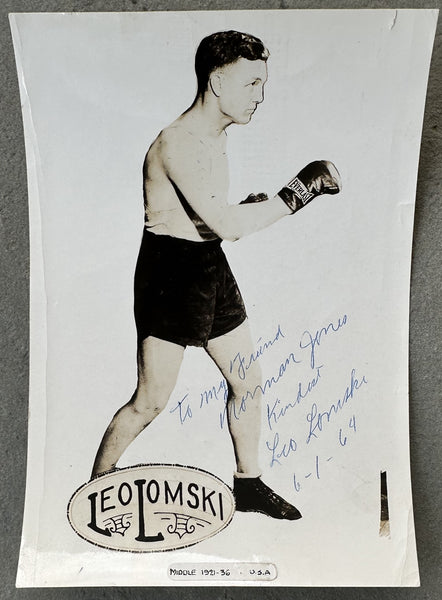 EVERLAST
to my Friend
Norman Jones
Kindest
Leo Lomski
6-1-64
LEO LOMSKI
MIDDLE 1921-36 · U.S.A